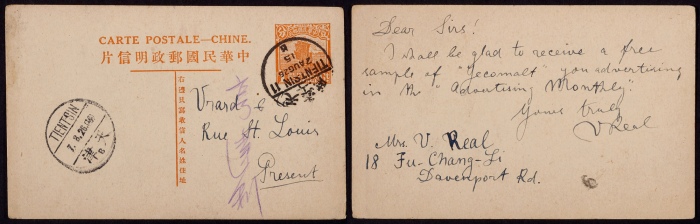 CARTE POSTALE—CHINE.
片信明政郵國民華中
右邊只寫收信人名姓住址
TIENTSIN 11
7 AUG 26
15
TIENTSIN
7.8.26
天津
Vrard &
Rue St. Louis
Present
Dear Sirs!
I shall be glad to receive a free
sample of "Jecomalt" you advertising
in the "Advertising Monthly".
Yours truly
V Real
Mrs. V. Real
18 Fu-Chang-Li
Davenport Rd.